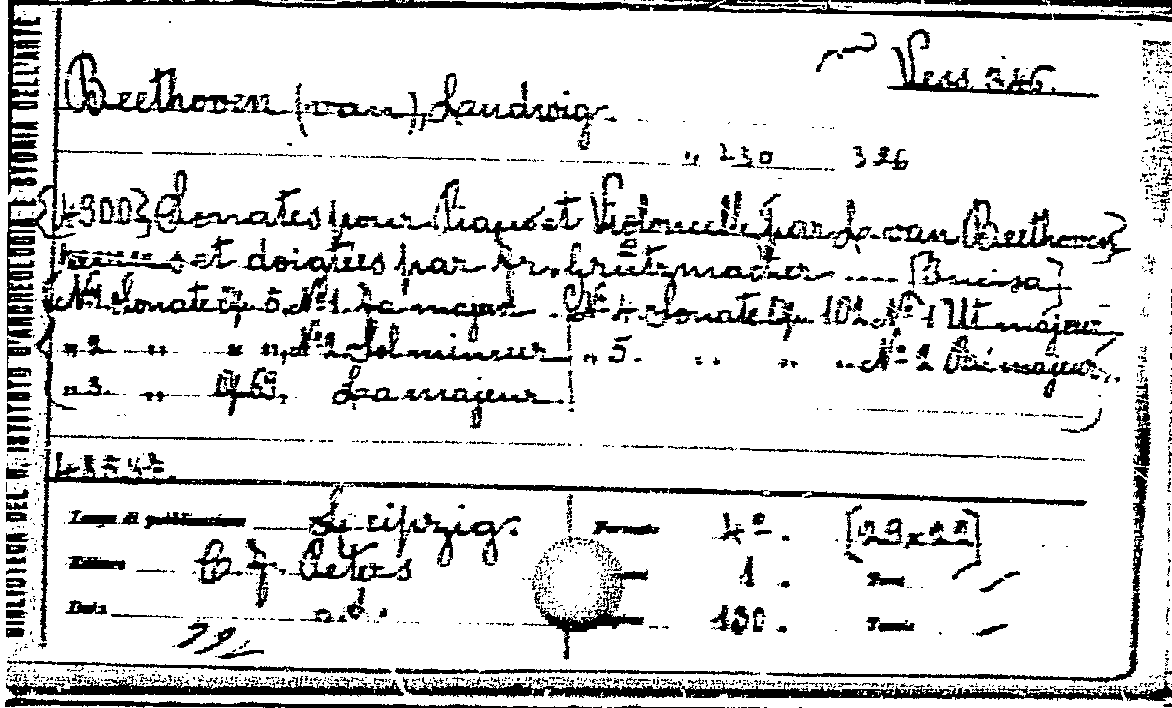 BIBLIOTECA DEL R. ISTITUTO D'ARCHEOLOGIA E STORIA DELL'ARTE
Vess. 346.
Beethoven (van), Laudwig.
" 230 326
Sonates pour Piano et Violoncelle par L. van Beethoven
et doigtées par Fr. Grützmacher ---- [Bucisa]
Nº 1 Sonate Op. 5. Nº 1 Fa majeur. Nº 4 Sonate Op. 102 Nº 1 Ut majeur
" 2 " " " Nº 2 Sol mineur " 5. " " " Nº 2 Ré majeur.
" 3. " Op. 69. La majeur.
Luogo di pubblicazione Leipzig. Formato 4º. [29x22]
Editore C. F. Peters 1. Tavi
Data n.d. Pagine 130. Tavole